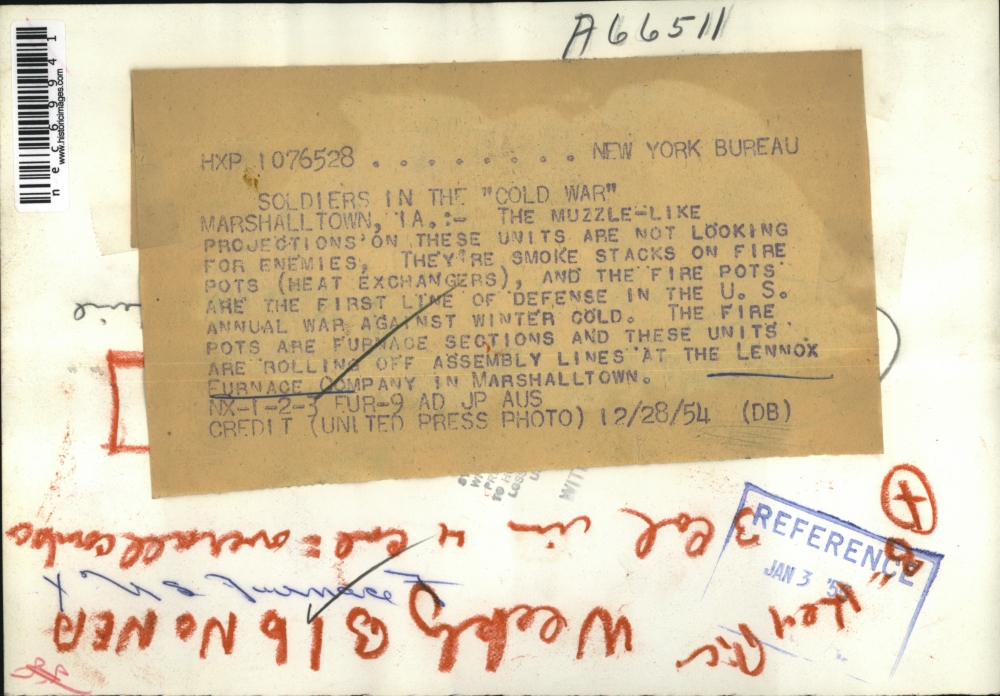 A66511
nec69941
www.historicimages.com
HXP 1076528 . . . . . . . . . NEW YORK BUREAU
SOLDIERS IN THE "COLD WAR"
MARSHALLTOWN, IA.:- THE MUZZLE-LIKE
PROJECTIONS ON THESE UNITS ARE NOT LOOKING
FOR ENEMIES. THEY'RE SMOKE STACKS ON FIRE
POTS (HEAT EXCHANGERS), AND THE FIRE POTS
ARE THE FIRST LINE OF DEFENSE IN THE U. S.
ANNUAL WAR AGAINST WINTER COLD. THE FIRE
POTS ARE FURNACE SECTIONS AND THESE UNITS
ARE ROLLING OFF ASSEMBLY LINES AT THE LENNOX
FURNACE COMPANY IN MARSHALLTOWN.
NX-1-2-3 EUR-9 AD JP AUS
CREDIT (UNITED PRESS PHOTO) 12/28/54 (DB)
REFERENCE
JAN 3 '55
3 Col in 4 Col = overall combo
Furnace
Weekly B 1 b No NEA